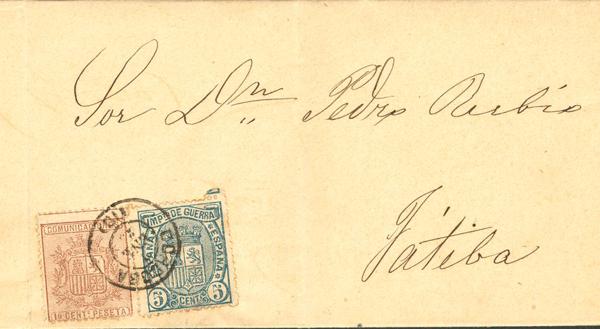 Sor Dn Pedro Rubio
Játiba
COMUNICAC
10 CENT. PESETA
IMPº DE GUERRA
ESPAÑA
ESPAÑA
5 CENT. 5